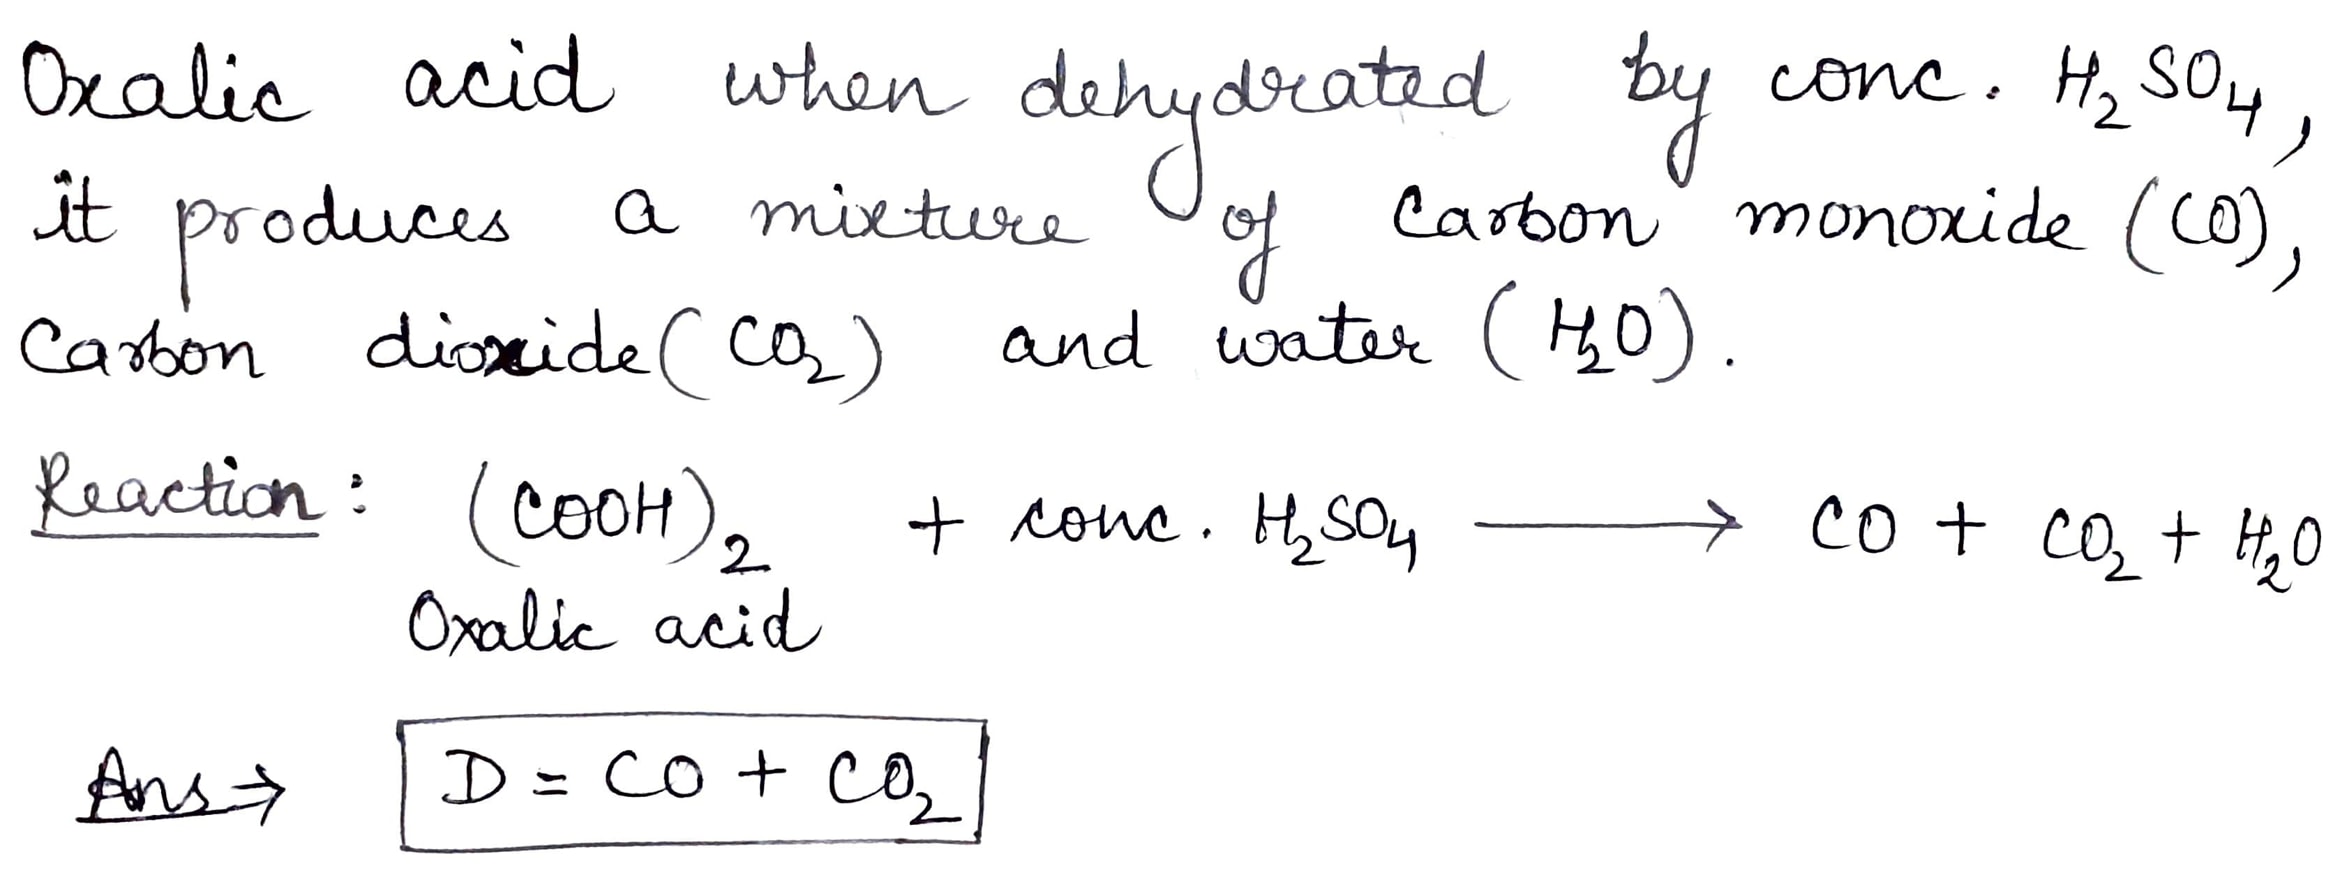 Oxalic acid when dehydrated by conc. H₂SO₄,
it produces a mixture of Carbon monoxide (CO),
Carbon dioxide (CO₂) and water (H₂O).
Reaction : (COOH)₂ + conc. H₂SO₄ ⟶ CO + CO₂ + H₂O
Oxalic acid
Ans ⇒ D = CO + CO₂